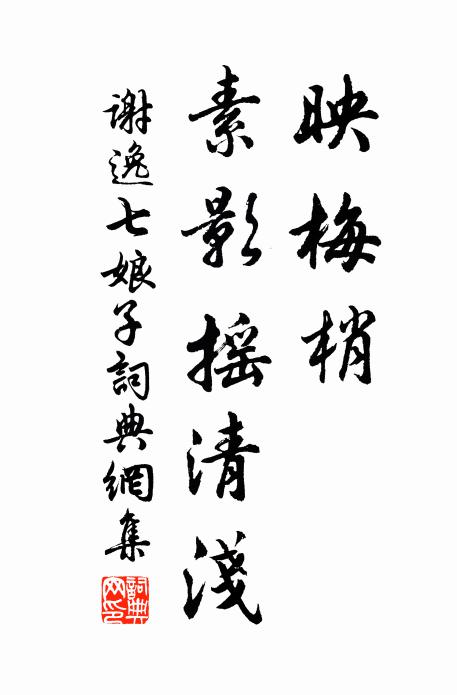 映梅梢
素影搖清淺
謝逸七娘子詞典網集
詞典網印